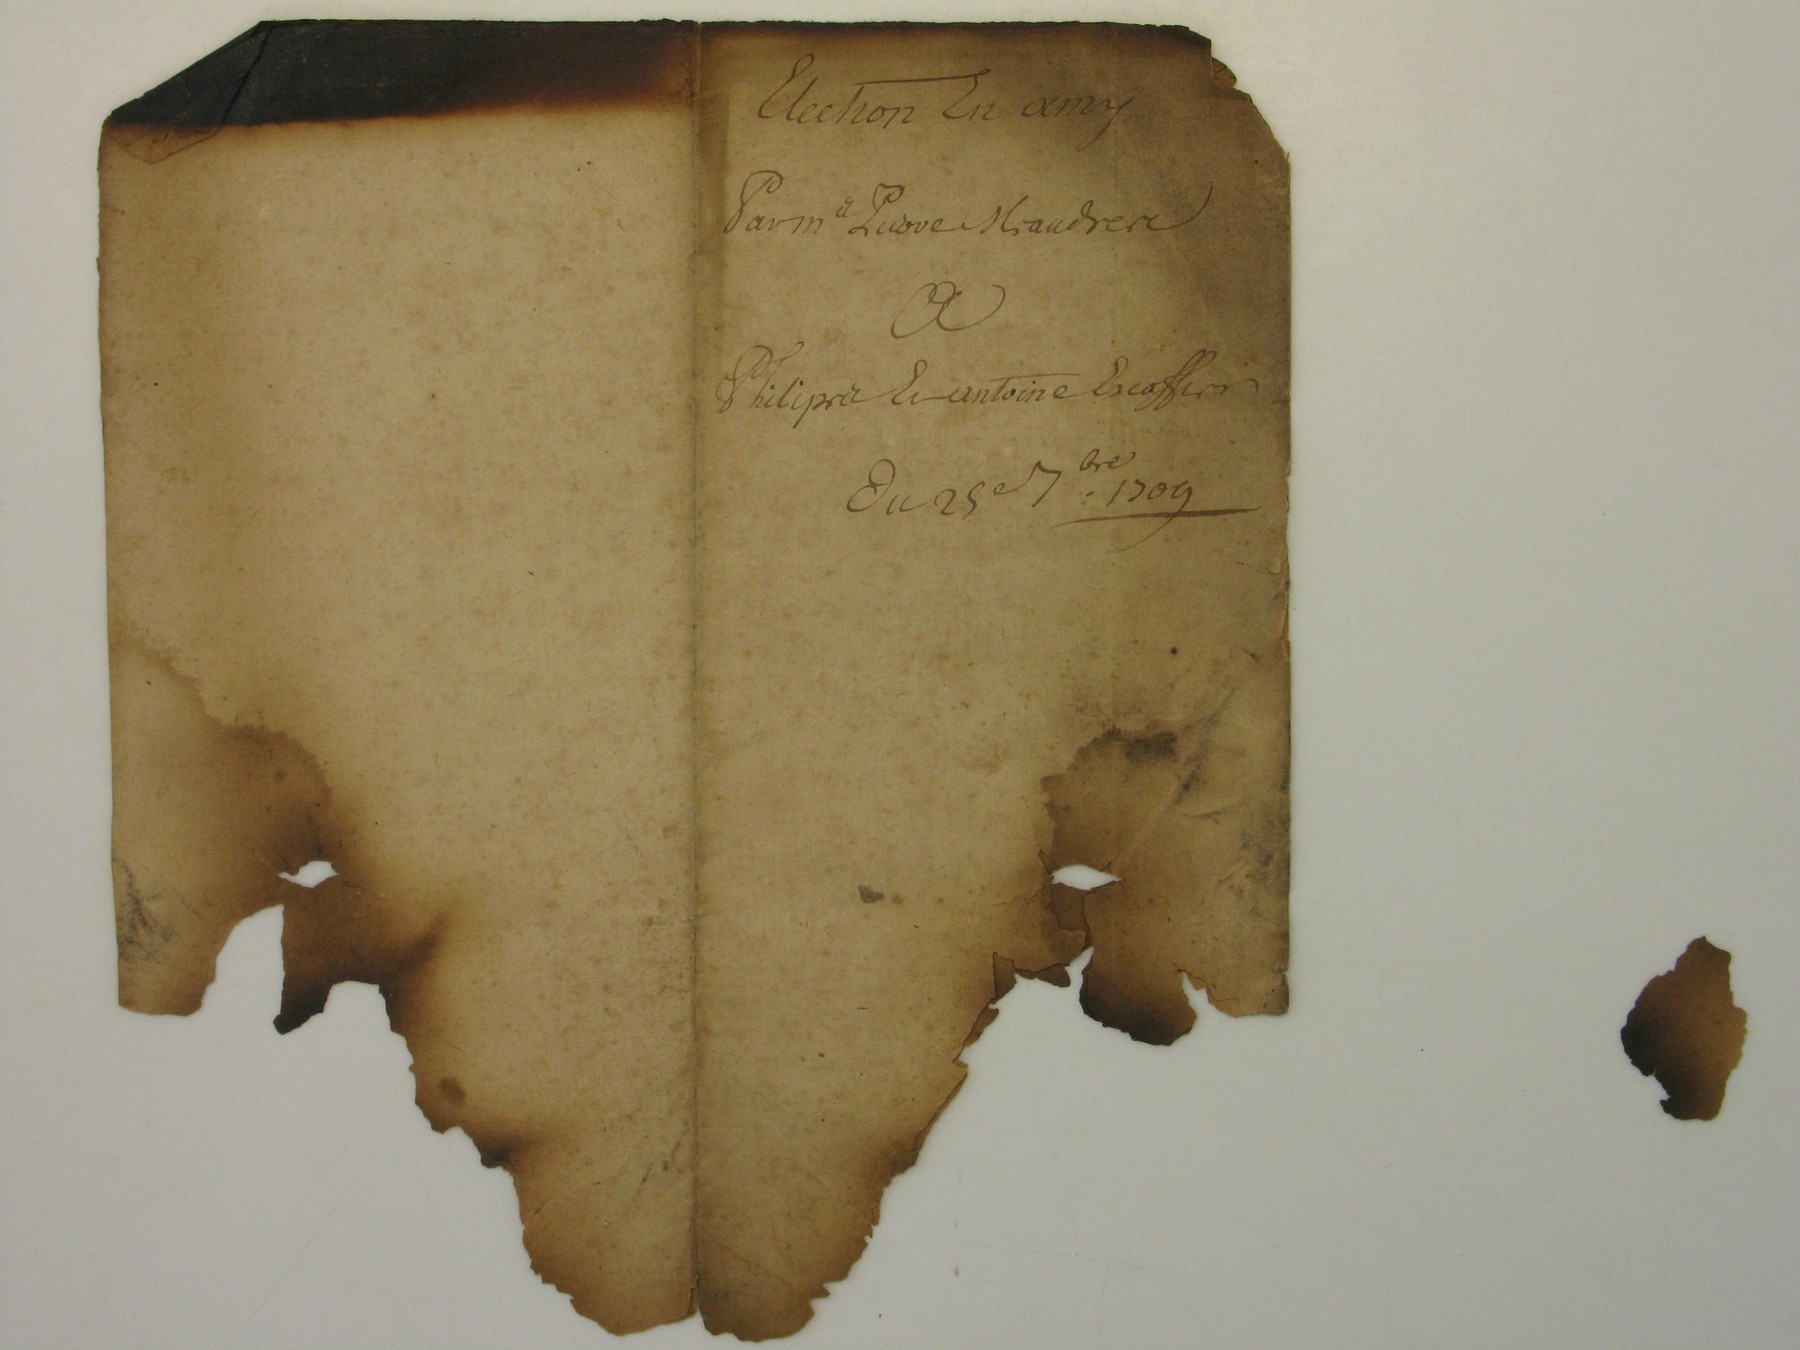 Election En amy
Par m^e Pierre Maudrere
A
Philipre Et antoine Escoffier
Du 25^e 7^bre. 1709